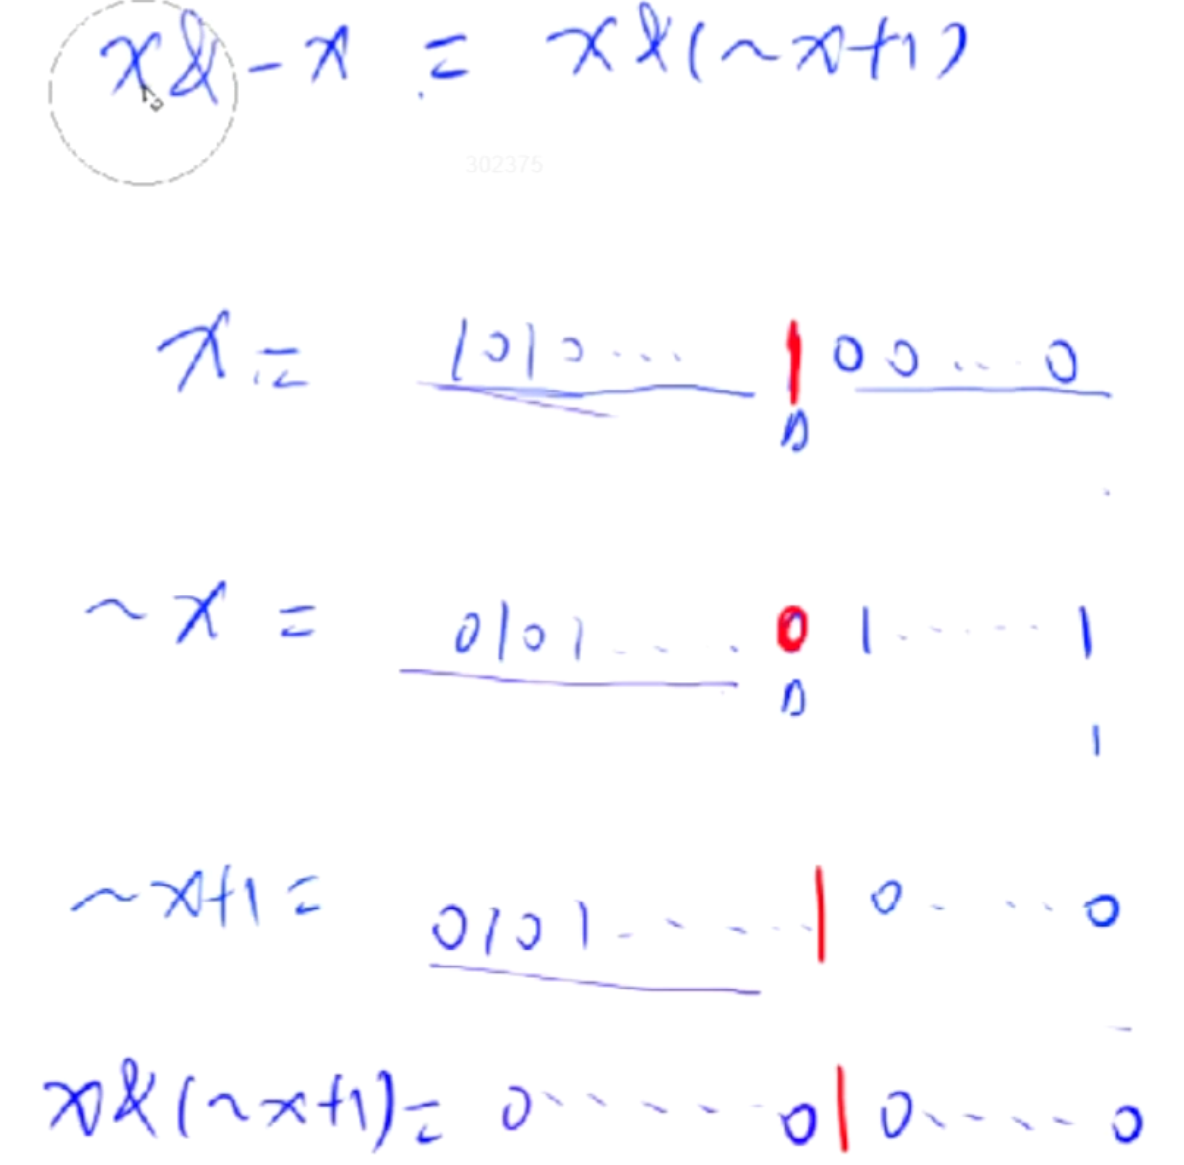 x&-x = x&(~x+1)
302375
x= 1010... 1 00...0
~x = 0101..... 0 1......1
1
~x+1= 0101...... 1 0....0
x&(~x+1)= 0......0 1 0.....0